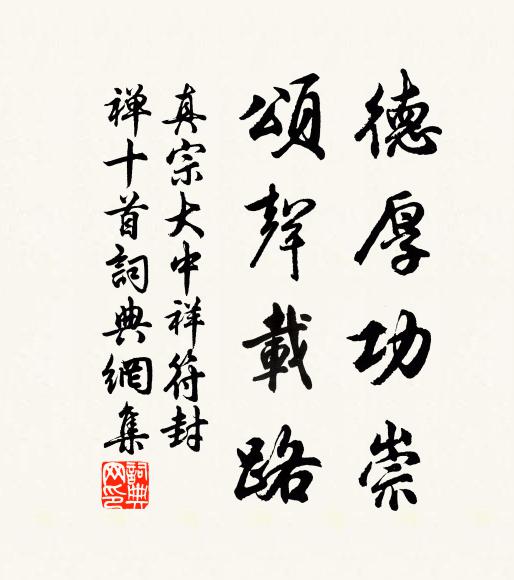 德厚功崇
頌聲載路
真宗大中祥符封
禅十首詞典網集
詞典网印